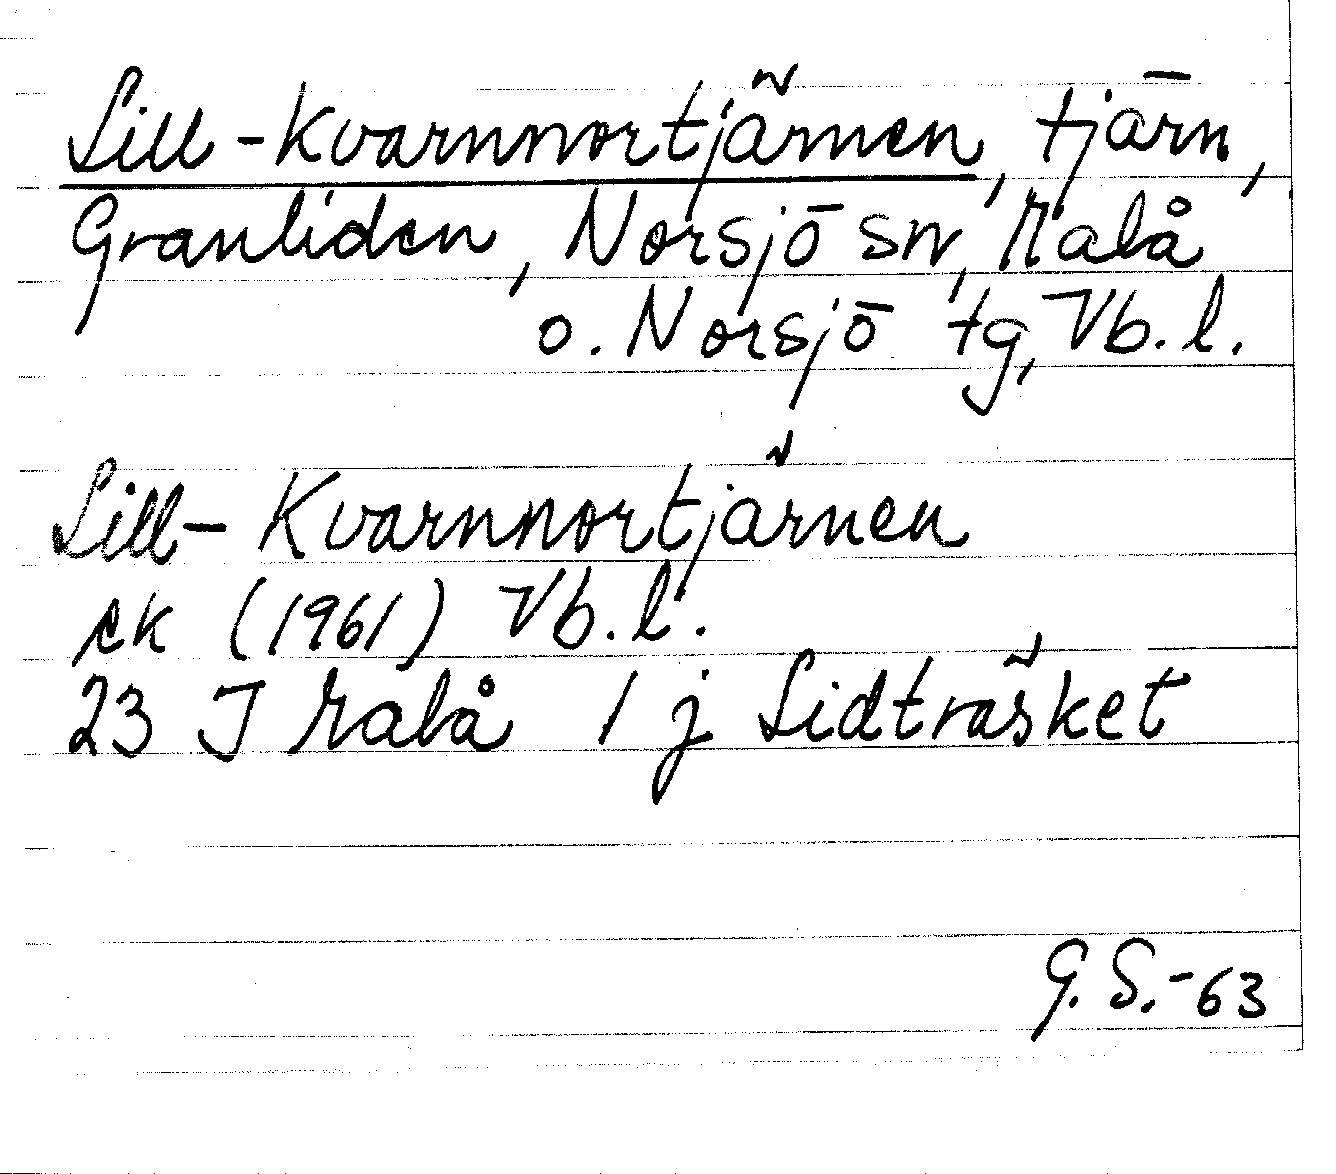 Lill-Kvarnnortjärnen, tjärn,
Granliden, Norsjö sn, Malå
o. Norsjö tg, Vb. l.
Lill-Kvarnnortjärnen
ek (1961) Vb. l.
23 J Malå 1 j Lidträsket
G. S.-63